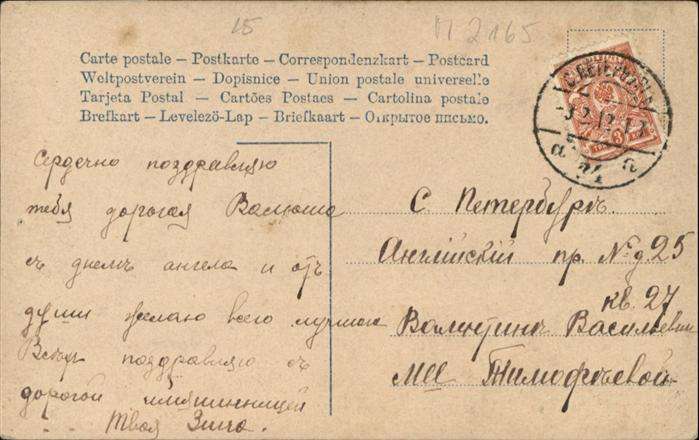 15
П 2165
Carte postale – Postkarte – Correspondenzkart – Postcard
Weltpostverein – Dopisnice – Union postale universelle
Tarjeta Postal – Cartões Postaes – Cartolina postale
Brefkart – Levelező-Lap – Briefkaart – Открытое письмо.
Сердечно поздравляю
тебя дорогая Валюша
съ днемъ ангела и отъ
души желаю всего лучшаго
Всѣхъ поздравляю съ
дорогой имянинницей
Твоя Зина.
С Петербургъ
Англійскій пр. № д. 25
кв. 27
Валентинѣ Васильевнѣ
Тимофѣевой